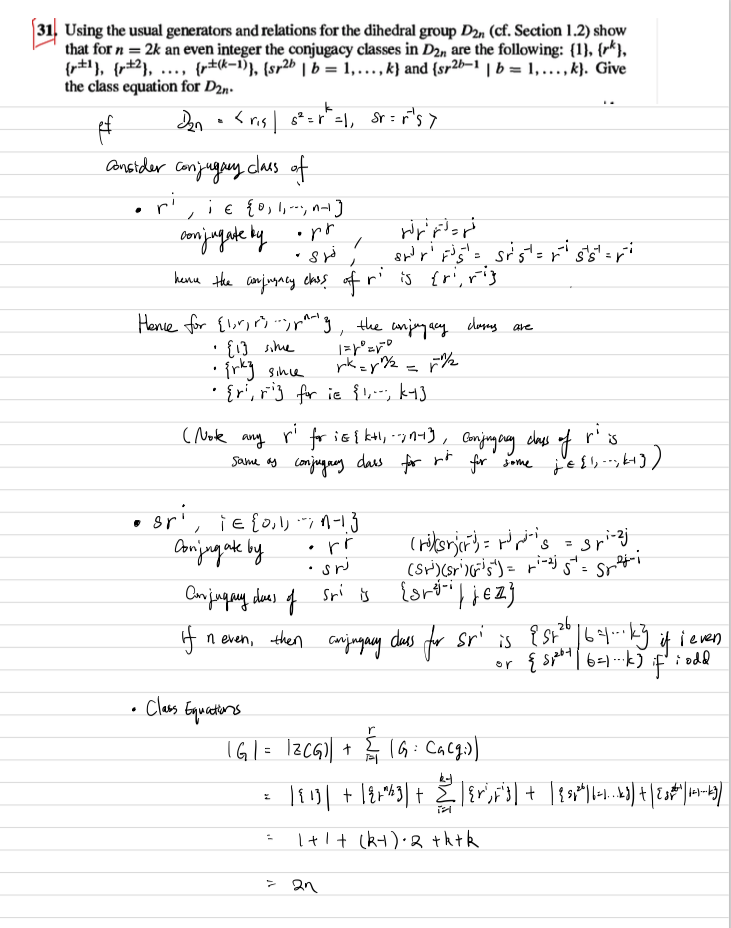 31. Using the usual generators and relations for the dihedral group D₂ₙ (cf. Section 1.2) show
that for n = 2k an even integer the conjugacy classes in D₂ₙ are the following: {1}, {rᵏ},
{r^{±1}}, {r^{±2}}, ..., {r^{±(k−1)}}, {sr^{2b} | b = 1, ..., k} and {sr^{2b−1} | b = 1, ..., k}. Give
the class equation for D₂ₙ.
pf D₂ₙ = < r, s | s² = r^k = 1, sr = r⁻¹s >
Consider conjugacy class of
• rⁱ, i ∈ {0, 1, ..., n-1}
conjugate by • r^j, r^j r^i r^{-j} = r^i
• sr^j, sr^j r^i r^{-j} s⁻¹ = s r^i s⁻¹ = r^{-i} s s⁻¹ = r^{-i}
hence the conjugacy class of r^i is {r^i, r^{-i}}
Hence for {1, r, r², ..., r^{n-1}}, the conjugacy classes are
• {1} since 1 = r⁰ = r^{-0}
• {r^k} since r^k = r^{n/2} = r^{-n/2}
• {r^i, r^{-i}} for i ∈ {1, ..., k-1}
(Note any r^i for i ∈ {k+1, ..., n-1}, conjugacy class of r^i is
same as conjugacy class for r^j for some j ∈ {1, ..., k-1})
• sr^i, i ∈ {0, 1, ..., n-1}
Conjugate by • r^j (r^j)(sr^i)(r^{-j}) = r^j r^{j-i} s = sr^{i-2j}
• sr^j (sr^j)(sr^i)(r^{-j}s⁻¹) = r^{i-2j} s⁻¹ = sr^{2j-i}
Conjugacy class of sr^i is {sr^{2j-i} | j ∈ ℤ}
If n even, then conjugacy class for sr^i is {sr^{2b} | b=1...k} if i even
or {sr^{2b-1} | b=1...k} if i odd
• Class Equations
|G| = |Z(G)| + Σ_{i=1}^{r} |G : C_G(g_i)|
= |{1}| + |{r^{n/2}}| + Σ_{i=1}^{k-1} |{r^i, r^{-i}}| + |{sr^{2b} | b=1...k}| + |{sr^{2b-1} | b=1...k}|
= 1 + 1 + (k-1)·2 + k + k
= 2n